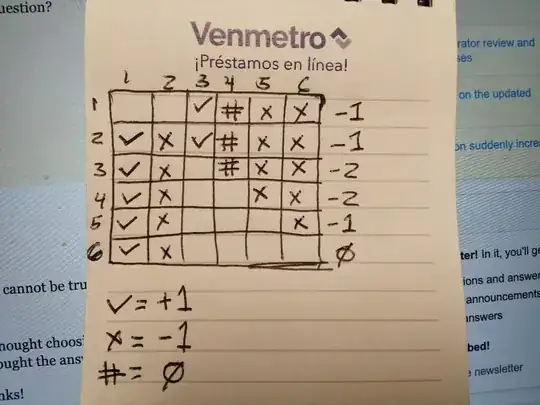 uestion?
Venmetro
¡Préstamos en línea!
rator review and
ses
on the updated
on suddenly incre
1 2 3 4 5 6
1 ✓ # x x -1
2 ✓ x ✓ # x x -1
3 ✓ x # x x -2
4 ✓ x x x -2
5 ✓ x x -1
6 ✓ x ∅
✓ = +1
x = -1
# = ∅
cannot be tru
nought choos
ought the ans
nks!
ter! In it, you'll ge
ions and answer
announcements
nswers
bed!
e newsletter